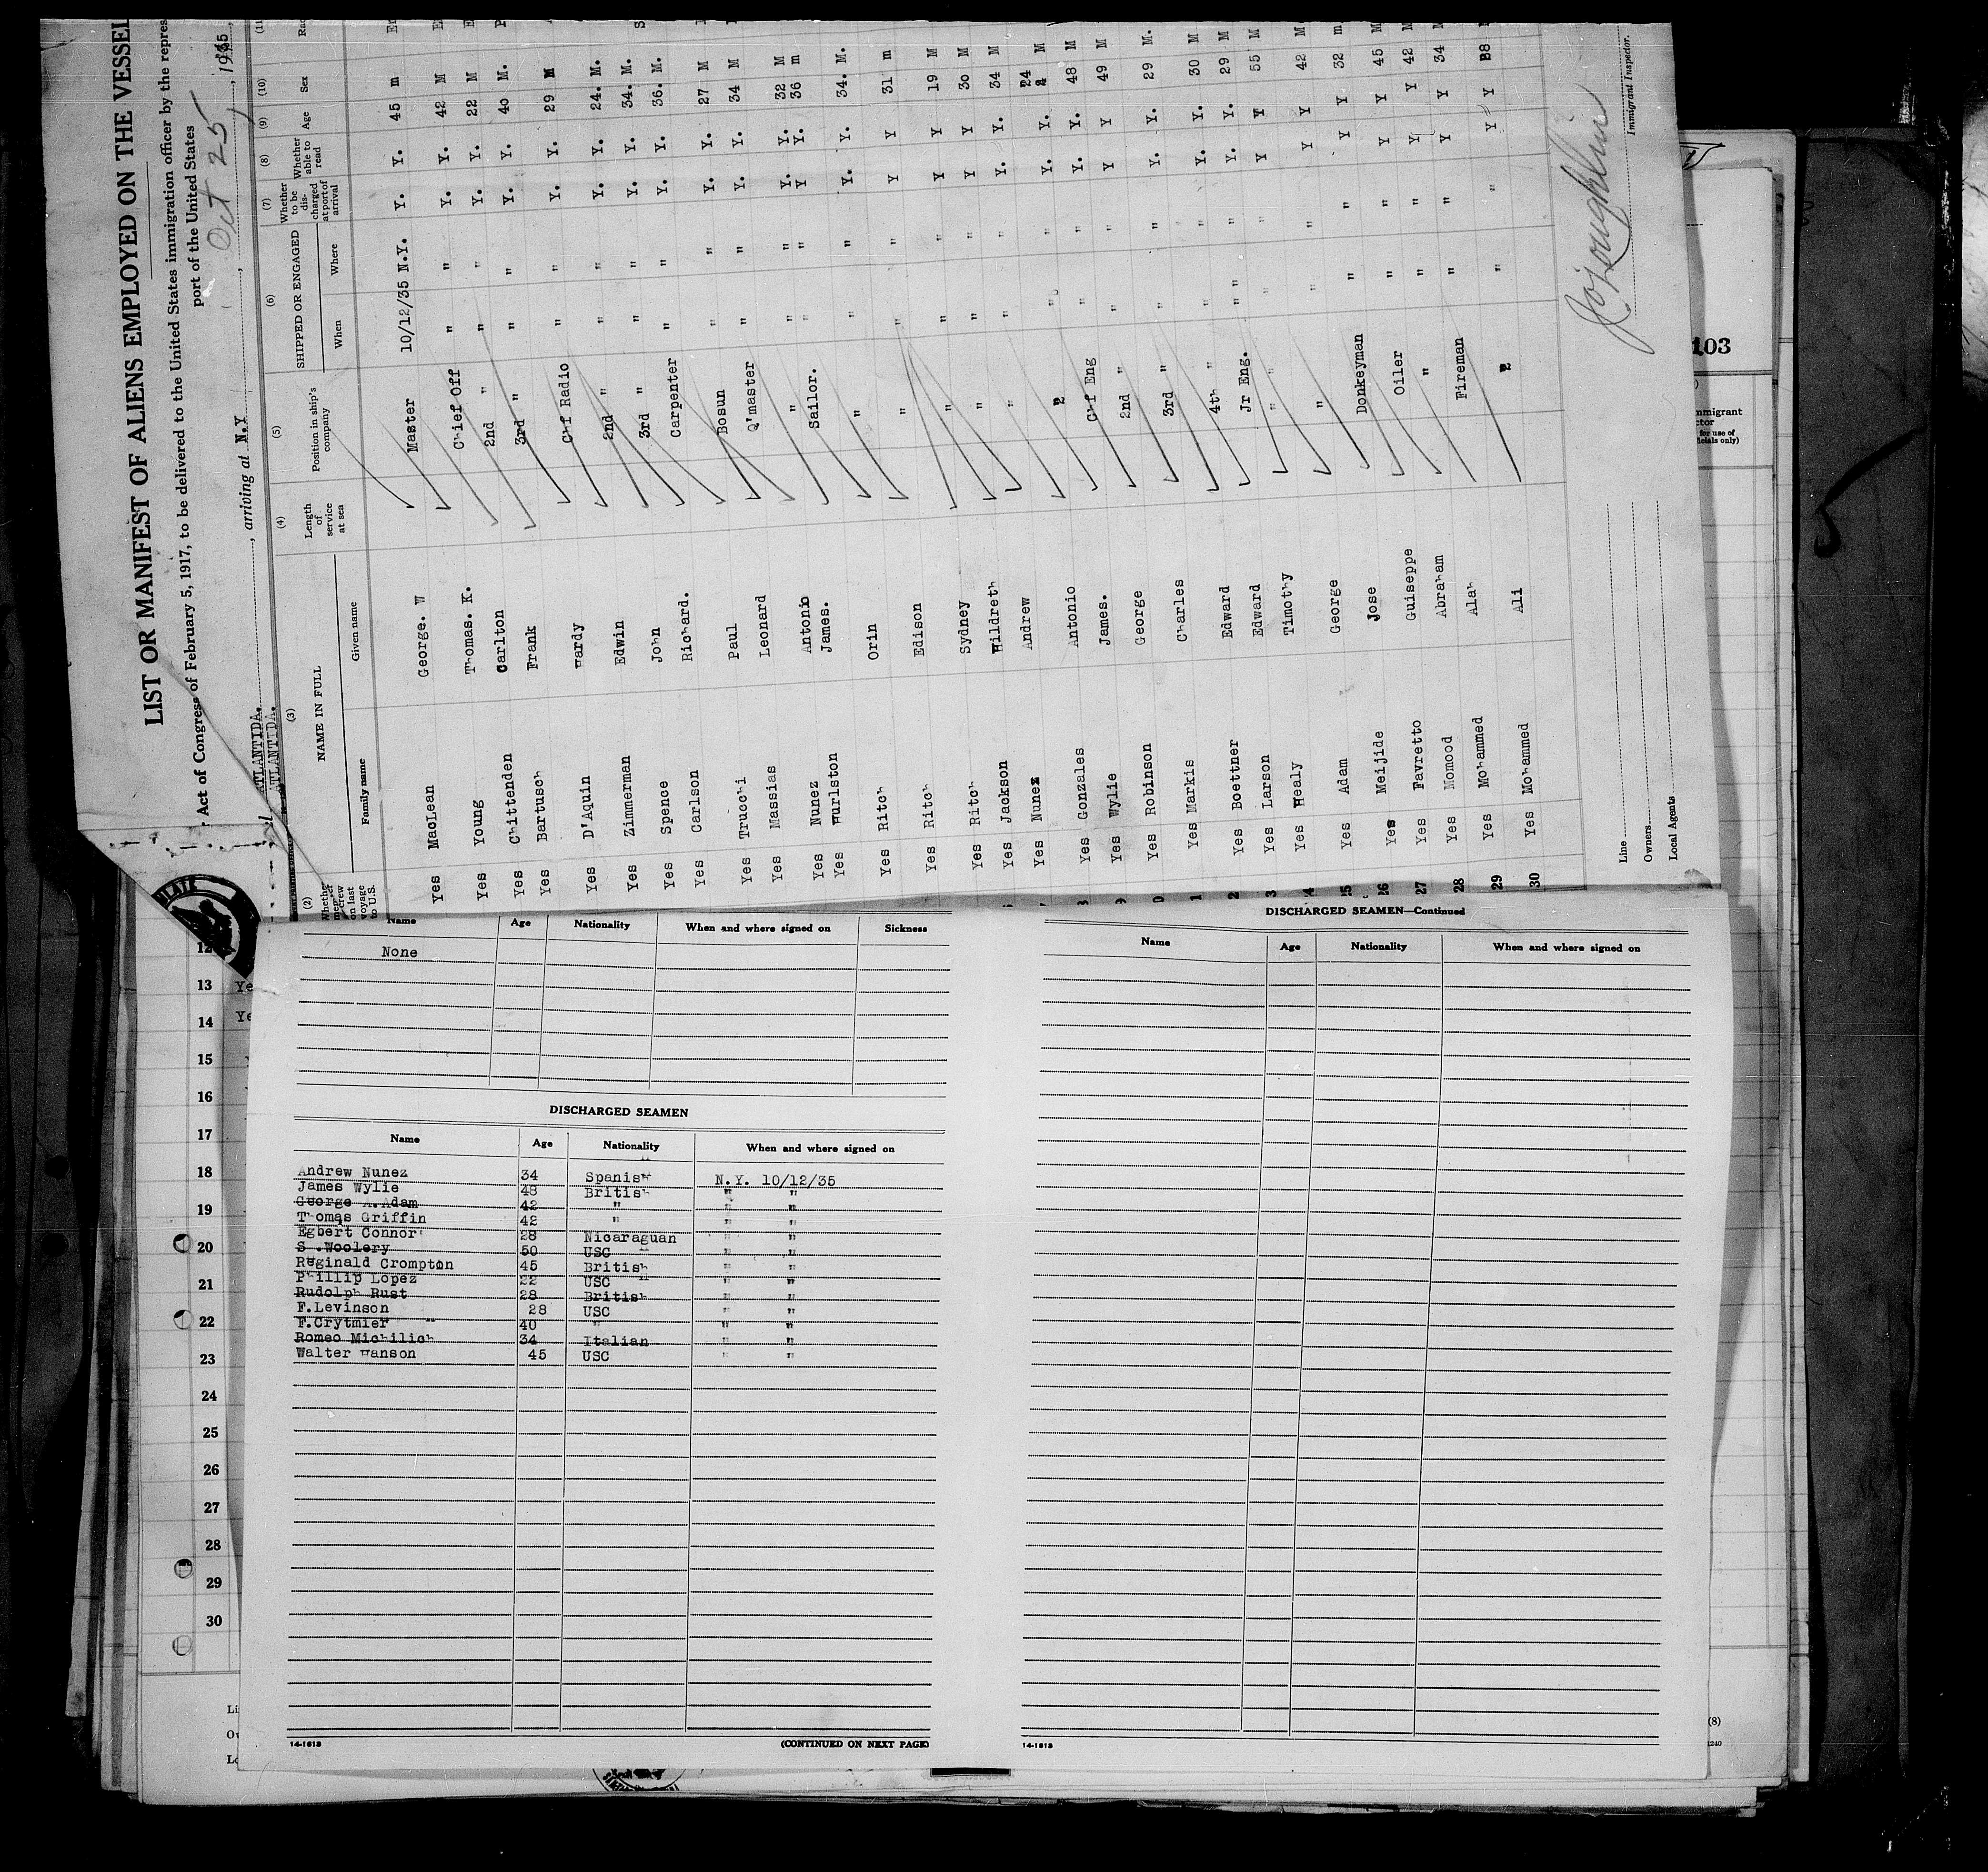 LIST OR MANIFEST OF ALIENS EMPLOYED ON THE VESSEL
Act of Congress of February 5, 1917, to be delivered to the United States immigration officer by the repres
port of the United States
ATLANTIDA. , arriving at N.Y , Oct 25 , 1935
ATLANTIDA.
(2) (3) (4) (5) (6) (7) (8) (9) (10) (11
NAME IN FULL
Family name Given name
Length of service at sea
Position in ship's company
SHIPPED OR ENGAGED
When Where
Whether to be discharged at port of arrival
Whether able to read
Age Sex
Yes MacLean George. W Master 10/12/35 N.Y. Y. Y. 45 m
Yes Young Thomas. K. Chief Off " " Y. Y. 42 M
Yes Chittenden Carlton 2nd " " " Y. Y. 22 M
Yes Bartusch Frank 3rd " " " Y. Y. 40 M.
Yes D'Aquin Hardy Chf Radio " " Y. Y. 29 M
Yes Zimmerman Edwin 2nd " " " Y. Y. 24. M.
Yes Spence John 3rd " " " Y. Y. 34. M.
Yes Carlson Richard. Carpenter " " Y. Y. 36. M.
Yes Trucchi Paul Bosun " " Y. Y. 27 M
Yes Massias Leonard Q'master " " Y. Y. 34 M
Yes Nunez Antonio " " " Y. Y. 32 M
Yes Hurlston James. Sailor. " " Y Y. 36 m
Yes Ritch Orin " " " Y. Y. 34. M.
Yes Ritch Edison " " " Y Y 31 m
Yes Ritch Sydney " " " Y Y 19 M
Yes Jackson Hildreth " " " Y Y 30 M
Yes Nunez Andrew " " " Y. Y. 34 M
Yes Gonzales Antonio " " Y. Y. 24 M
Yes Wylie James. Chf Eng " " Y. Y. 48 M
Yes Robinson George 2nd " " " Y Y 49 M
Yes Markis Charles 3rd " " " Y. Y. 29 M.
Yes Boettner Edward 4th " " " Y. Y. 30 M
Yes Larson Edward Jr Eng. " " Y. Y. 29 M
Yes Healy Timothy " " " Y Y 55 M
25 Yes Adam George " " " Y Y 42 M
26 Yes Meijide Jose Donkeyman " " Y Y 32 m
27 Yes Favretto Guiseppe Oiler " " Y Y 45 M
28 Yes Momood Abraham " " " Y Y 42 M
29 Yes Mohammed Alah Fireman " " Y Y 34 M
30 Yes Mohammed Ali " " Y Y 38
Line
Owners
Local Agents
Immigrant Inspector.
103
Name Age Nationality When and where signed on Sickness
None
DISCHARGED SEAMEN
Name Age Nationality When and where signed on
Andrew Nunez 34 Spanish N.Y. 10/12/35
James Wylie 48 British " "
George A.Adam 42 " " "
Thomas Griffin 42 " " "
Egbert Connor 28 Nicaraguan " "
S .Woolery 50 USC " "
Reginald Crompton 45 British " "
Phillip Lopez 22 USC " "
Rudolph Rust 28 British " "
F.Levinson 28 USC " "
F.Crytmier 40 " " "
Romeo Michilich 34 Italian " "
Walter Hanson 45 USC " "
14-1613 (CONTINUED ON NEXT PAGE)
DISCHARGED SEAMEN—Continued
Name Age Nationality When and where signed on
14-1613
12
13 Ye
14 Ye
15
16
17
18
19
20
21
22
23
24
25
26
27
28
29
30